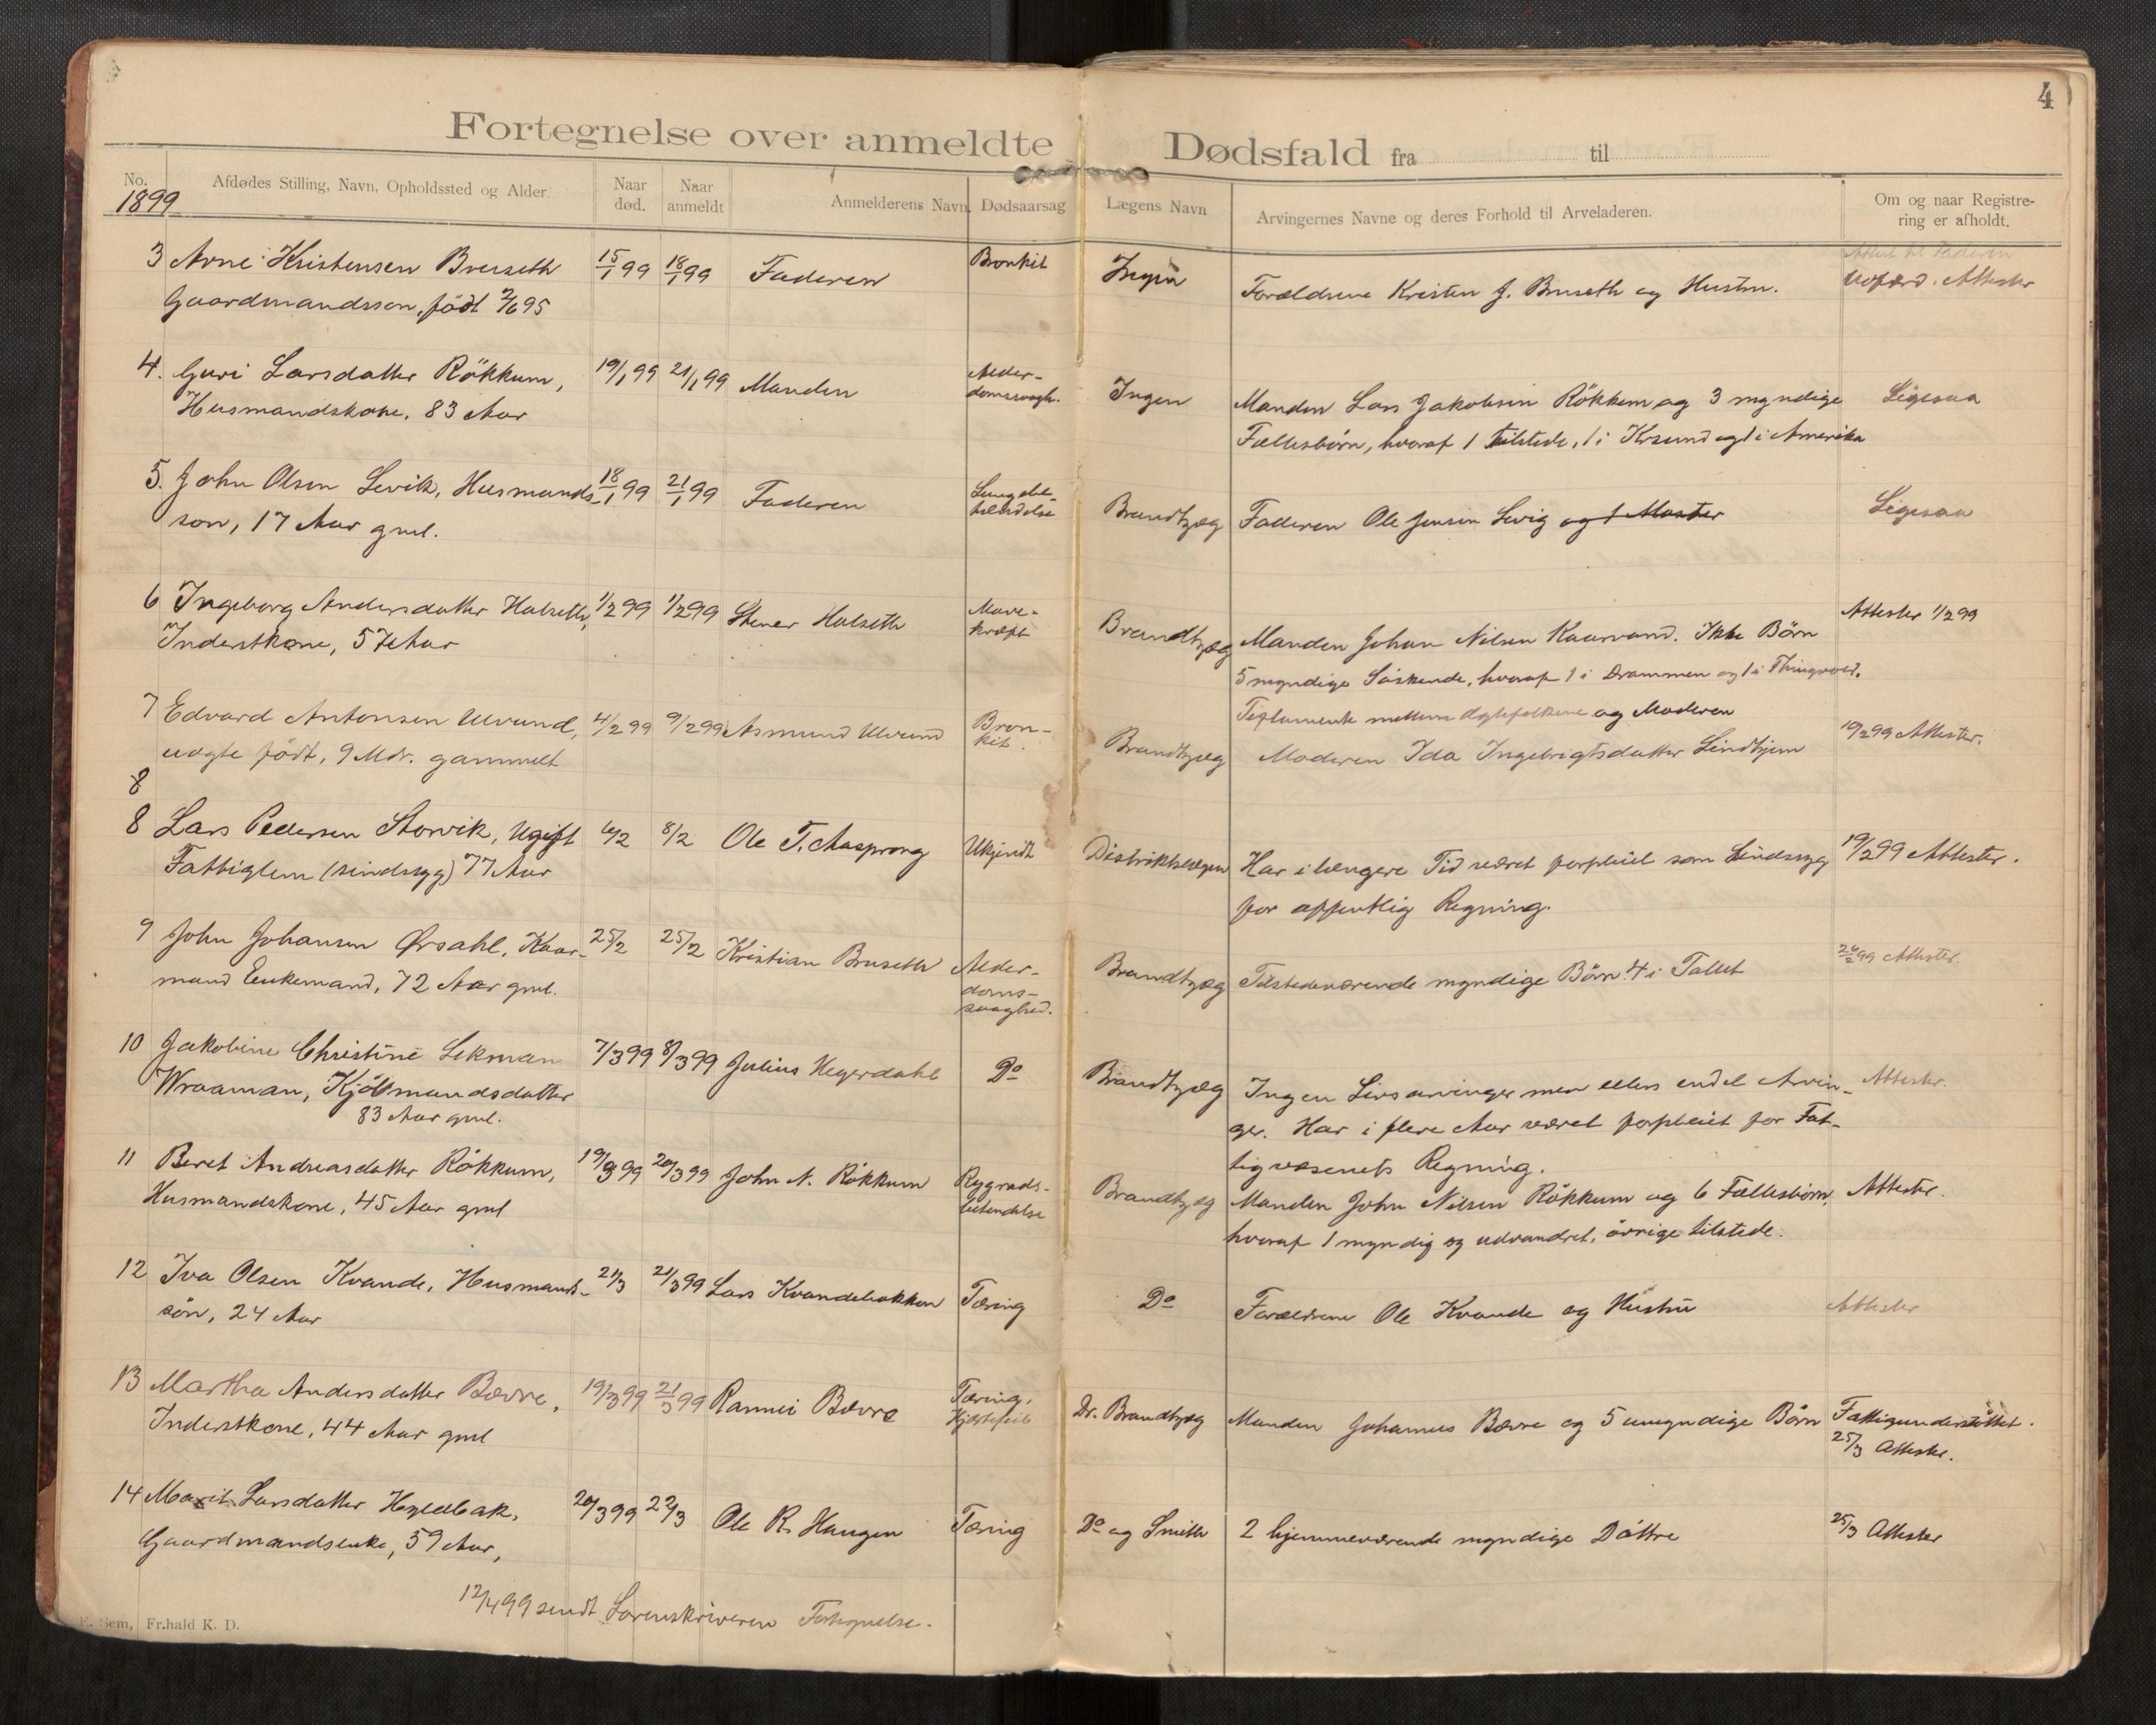 4
Fortegnelse over anmeldte Dødsfald fra til
No. Afdødes Stilling, Navn, Opholdssted og Alder. Naar død. Naar anmeldt Anmelderens Navn. Dødsaarsag Lægens Navn Arvingernes Navne og deres Forhold til Arveladeren. Om og naar Registrering er afholdt.
1899
Attest til Faderen
3 Arne Kristensen Bruseth 15/1 99 18/1 99 Faderen Bronkit Ingen Forældrene Kristen J. Bruseth og Hustru. Attester
Gaardmandssøn, født 2/6 95
4. Guri Larsdatter Rökkum, 19/1 99 21/1 99 Manden Alder- Ingen Manden Lars Jakobsen Rökkum og 3 myndige Ligesaa
Husmandskone, 83 Aar domssvagh. Fællesbörn, hvoraf 1 tilstede, 1 i Krsund og 1 i Amerika
5. John Olsen Levik, Husmands- 18/1 99 21/1 99 Faderen Lungebe- Brandtzæg Faderen Ole Jensen Levig og 1 Moster Ligesaa
son, 17 Aar gml. tændelse
6 Ingeborg Andersdatter Halseth, 1/2 99 1/2 99 Stener Halseth Mave- Brandtzæg Manden Johan Nilsen Kaarvand. Ikke Börn Attester 1/2 99
Inderstkone, 57 Aar kræft 5 myndige Söskende, hvoraf 1 i Drammen og 1 i Thingvold.
Testamente mellem Ægtefolkene og Moderen
7 Edvard Antonsen Ulvund, 4/2 99 9/2 99 Asmund Ulvund Bron- Brandtzæg Moderen Ida Ingebrigtsdatter Lindhjem 10/2 99 Attester.
uægte født, 9 Mdr. gammelt kit.
8
8 Lars Pedersen Storvik, Ugift 6/2 8/2 Ole T. Aasprong Ukjendt Distriktslægen Har i længere Tid været forpleiet som Sindssyg 19/2 99 Attester.
Fattiglem (sindssyg) 77 Aar for offentlig Regning.
9 John Johansen Ørsahl, Kaar- 25/2 25/2 Kristian Bruseth Alder- Brandtzæg Tilstedeværende myndige Börn 4 i Tallet 26/2 99 Attester.
mand Enkemand, 72 Aar gml. doms-
svaghed.
10 Jakobine Christine Lekman 7/3 99 8/3 99 Julius Hegerdahl Do Brandtzæg Ingen Livsarvinger men ellers endel Arvin- Attester.
Wraaman, Kjöbmandsdatter ger. Har i flere Aar været forpleiet for Fat-
83 Aar gml. tigvæsenets Regning.
11 Beret Andreasdatter Rökkum, 19/3 99 20/3 99 John N. Rökkum Rygrads- Brandtzæg Manden John Nilsen Rökkum og 6 Fællesbörn, Attester.
Husmandskone, 45 Aar gml betendelse hvoraf 1 myndig og udvandret, övrige tilstede.
12 Iva Olsen Kvande, Husmands- 21/3 21/3 99 Lars Kvandebakken Tæring Do Forældrene Ole Kvande og Hustru Attester
sön, 24 Aar
13 Martha Andersdatter Bævre, 19/3 99 21/3 99 Rannei Bævre Tæring, Dr. Brandtzæg Manden Johannes Bævre og 5 umyndige Börn Fattigunderstöttet.
Inderstkone, 44 Aar gml Hjertefeil 25/3 Attester.
14 Marit Larsdatter Hyldbak, 20/3 99 22/3 Ole R. Haugen Tæring Do og Smith 2 hjemmeværende myndige Döttre 25/3 Attester
Gaardmandsenke, 59 Aar,
12/4 99 sendt Sorenskriveren Fortegnelse.
E. Sem, Fr.hald K. D.